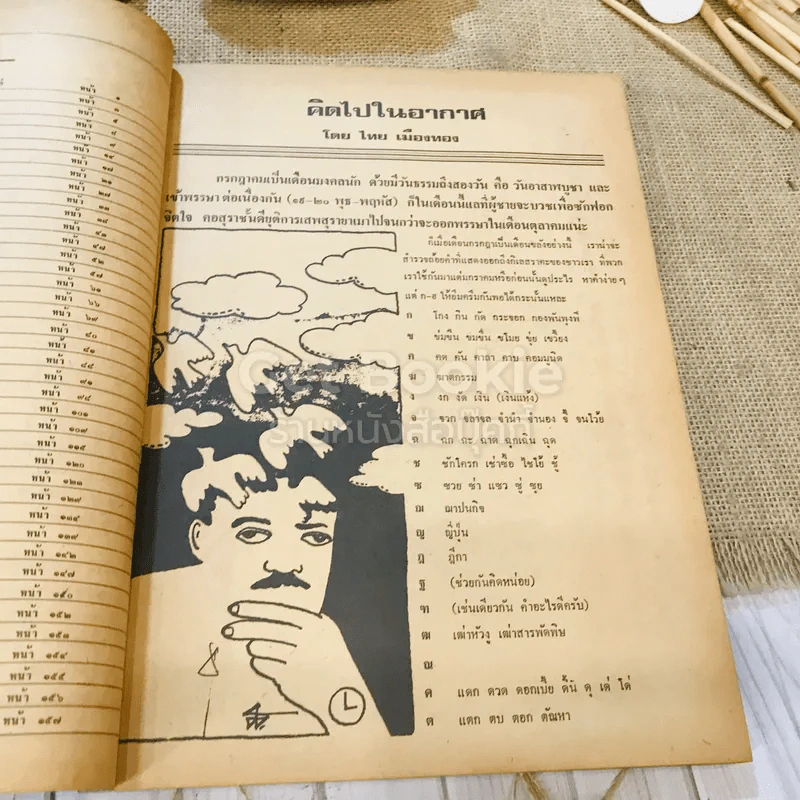 หน้า ๑
หน้า ๓
หน้า ๕
หน้า ๘
หน้า ๙
หน้า ๑๕
หน้า ๑๗
หน้า ๒๑
หน้า
หน้า
หน้า
หน้า
หน้า ๔๗
หน้า ๕๒
หน้า ๕๗
หน้า ๖๑
หน้า ๖๖
หน้า ๖๙
หน้า ๘๐
หน้า ๘๑
หน้า ๙๑
หน้า ๙๔
หน้า ๑๐๑
หน้า ๑๐๙
หน้า ๑๑๕
หน้า ๑๒๐
หน้า ๑๒๓
หน้า ๑๒๙
หน้า ๑๓๔
หน้า ๑๓๙
หน้า ๑๔๒
หน้า ๑๔๗
หน้า ๑๕๐
หน้า ๑๕๒
หน้า ๑๕๓
หน้า ๑๕๔
หน้า ๑๕๕
หน้า ๑๕๖
หน้า ๑๕๗
คิดไปในอากาศ
โดย ไทย เมืองทอง
กรกฎาคมเป็นเดือนมงคลนัก ด้วยมีวันธรรมถึงสองวัน คือ วันอาสาฬบูชา และ
เข้าพรรษา ต่อเนื่องกัน (๑๙-๒๐ พุธ-พฤหัส) ก็ในเดือนนี้แลที่ผู้ชายจะบวชเพื่อซักฟอก
จิตใจ คอสุราชั้นดียุติการเสพสุรายาเมาไปจนกว่าจะออกพรรษาในเดือนตุลาคมแน่ะ
ก็เมื่อเดือนกรกฎาเป็นเดือนขลังอย่างนี้ เราน่าจะ
สำรวจถ้อยคำที่แสดงออกถึงกิเลสราคะของชาวเรา ที่พวก
เราใช้กันมาแต่มกราคมหรือก่อนนั้นดูประไร หาคำง่าย ๆ
แต่ ก-ฮ ให้ยิ้มครึ้มกันพอได้กระนั้นแหละ
ก โกง กิน กัด กระจอก กองพันพุงพี
ข ข่มขืน ขมขื่น ขโมย ขุ่ย เขวี้ยง
ค คด คัน คาถา คาบ คอมมูนิต
ฆ ฆาตกรรม
ง งก งัด เงิน (เงินแห้ง)
จ จวก จลาจล จำนำ จำนอง จี้ จนไว้ย
ฉ ฉก ฉะ ฉาด ฉุกเฉิน ฉุด
ช ชักโครก เช่าซื้อ ไชโย้ ชู้
ซ ซวย ซ่า แซว ซู่ ซุย
ฌ ฌาปนกิจ
ญ ญี่ปุ่น
ฎ ฎีกา
ฐ (ช่วยกันคิดหน่อย)
ฑ (เช่นเดียวกัน คำอะไรดีครับ)
ฒ เฒ่าหัวงู เฒ่าสารพัดพิษ
ณ
ด แดก ดวด ดอกเบี้ย ดั้น ดุ เด่ โด่
ต แตก ตบ ตอก ตัณหา
Get Bookie
ร้านหนังสือบุ๊คกี้